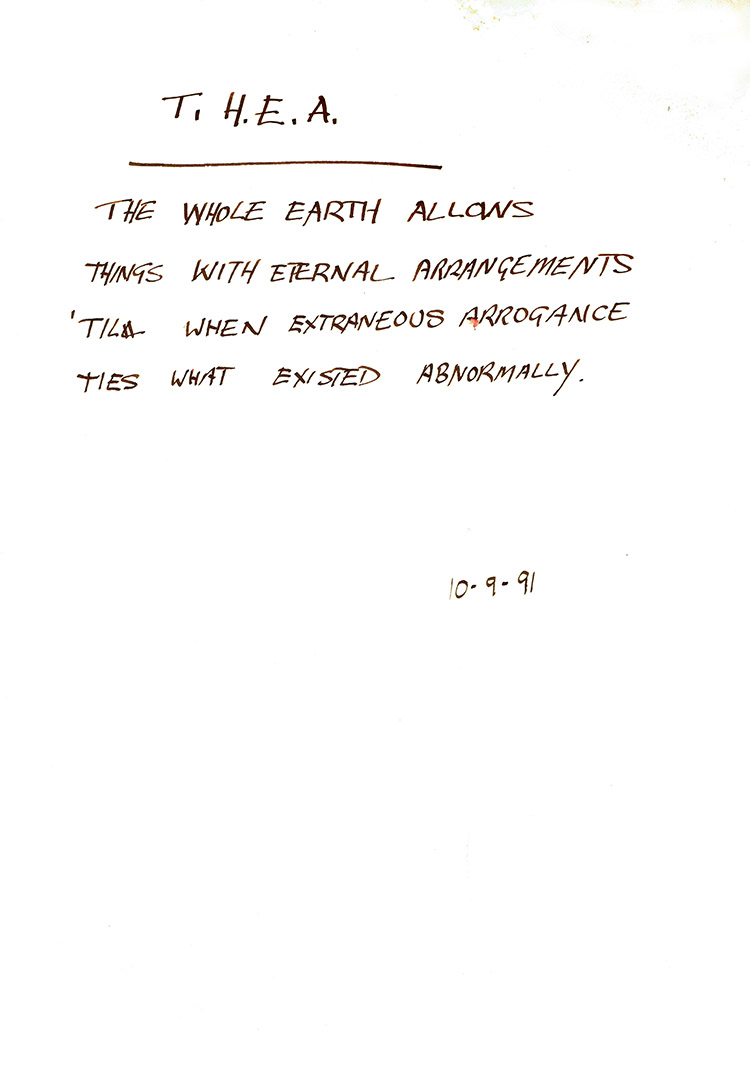 T. H.E.A.
THE WHOLE EARTH ALLOWS
THINGS WITH ETERNAL ARRANGEMENTS
'TILL WHEN EXTRANEOUS ARROGANCE
TIES WHAT EXISTED ABNORMALLY.
10-9-91